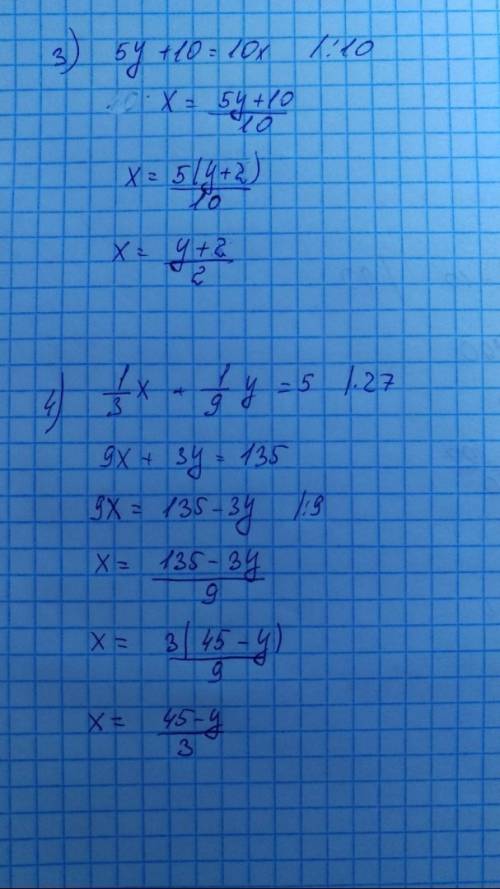 3) 5y + 10 = 10x |:10
x = (5y+10)/10
x = 5(y+2)/10
x = (y+2)/2
4) 1/3 x + 1/9 y = 5 |·27
9x + 3y = 135
9x = 135 - 3y |:9
x = (135 - 3y)/9
x = 3(45 - y)/9
x = (45-y)/3